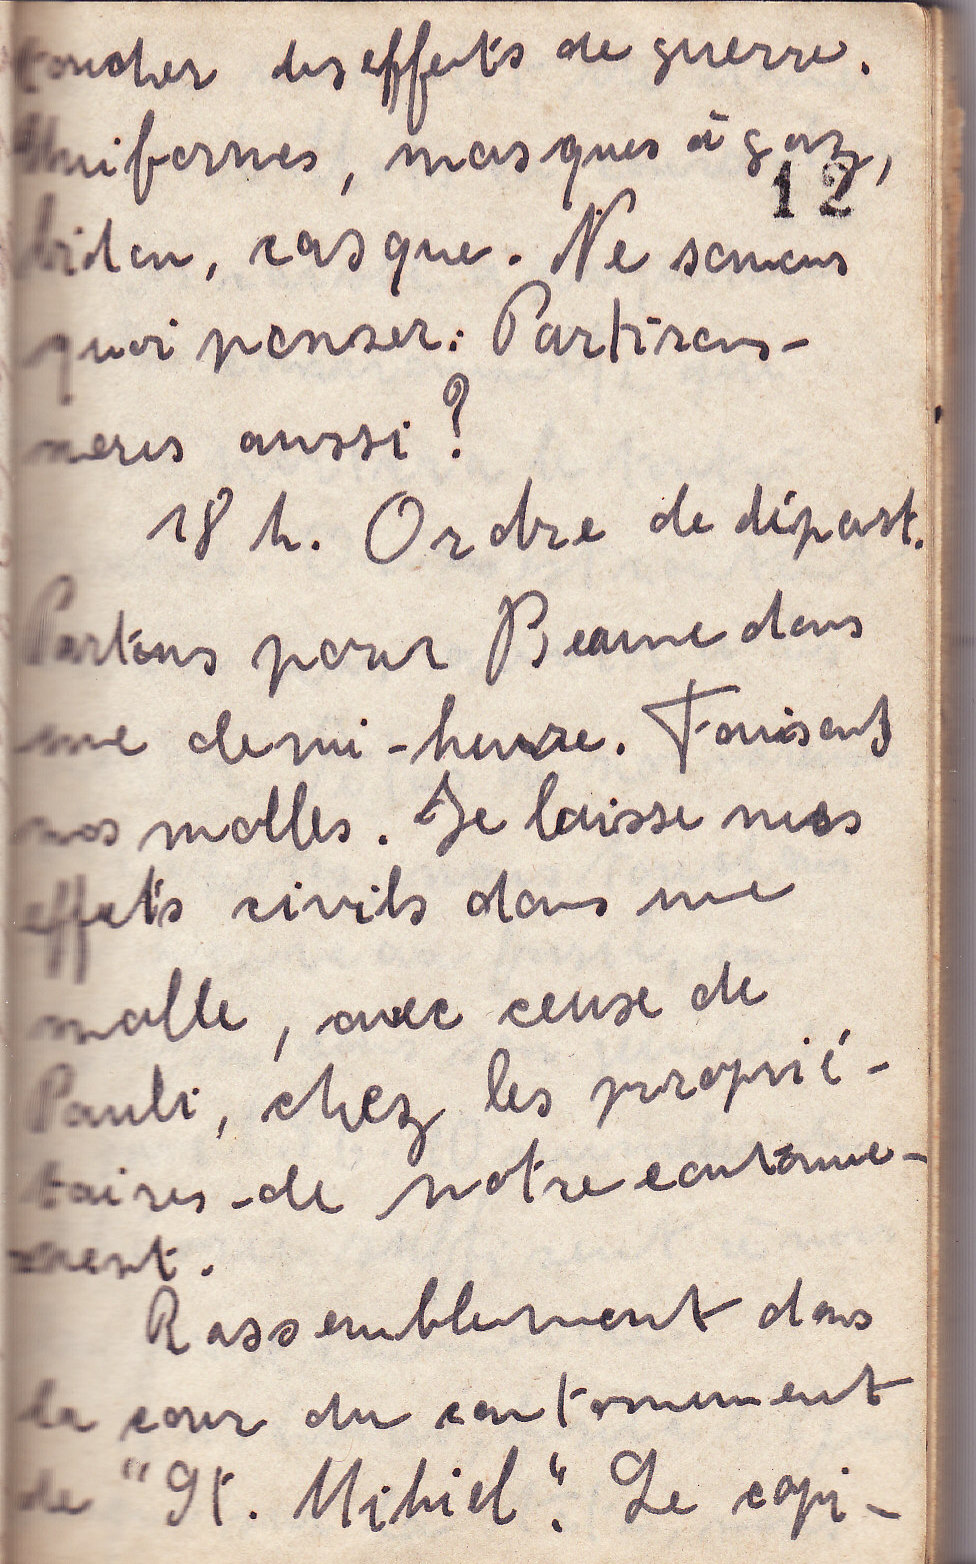 toucher des effets de guerre.
Uniformes, masques à gaz,
12
bidon, casque. Ne savons
quoi penser: Partirons-
nous aussi?
18 h. Ordre de départ.
Partons pour Beaune dans
une demi-heure. Faisons
nos malles. Je laisse mes
effets civils dans une
malle, avec ceux de
Pauli, chez les proprié-
taires de notre cantonne-
ment.
Rassemblement dans
la cour du cantonnement
de "St. Mihiel". Le capi-